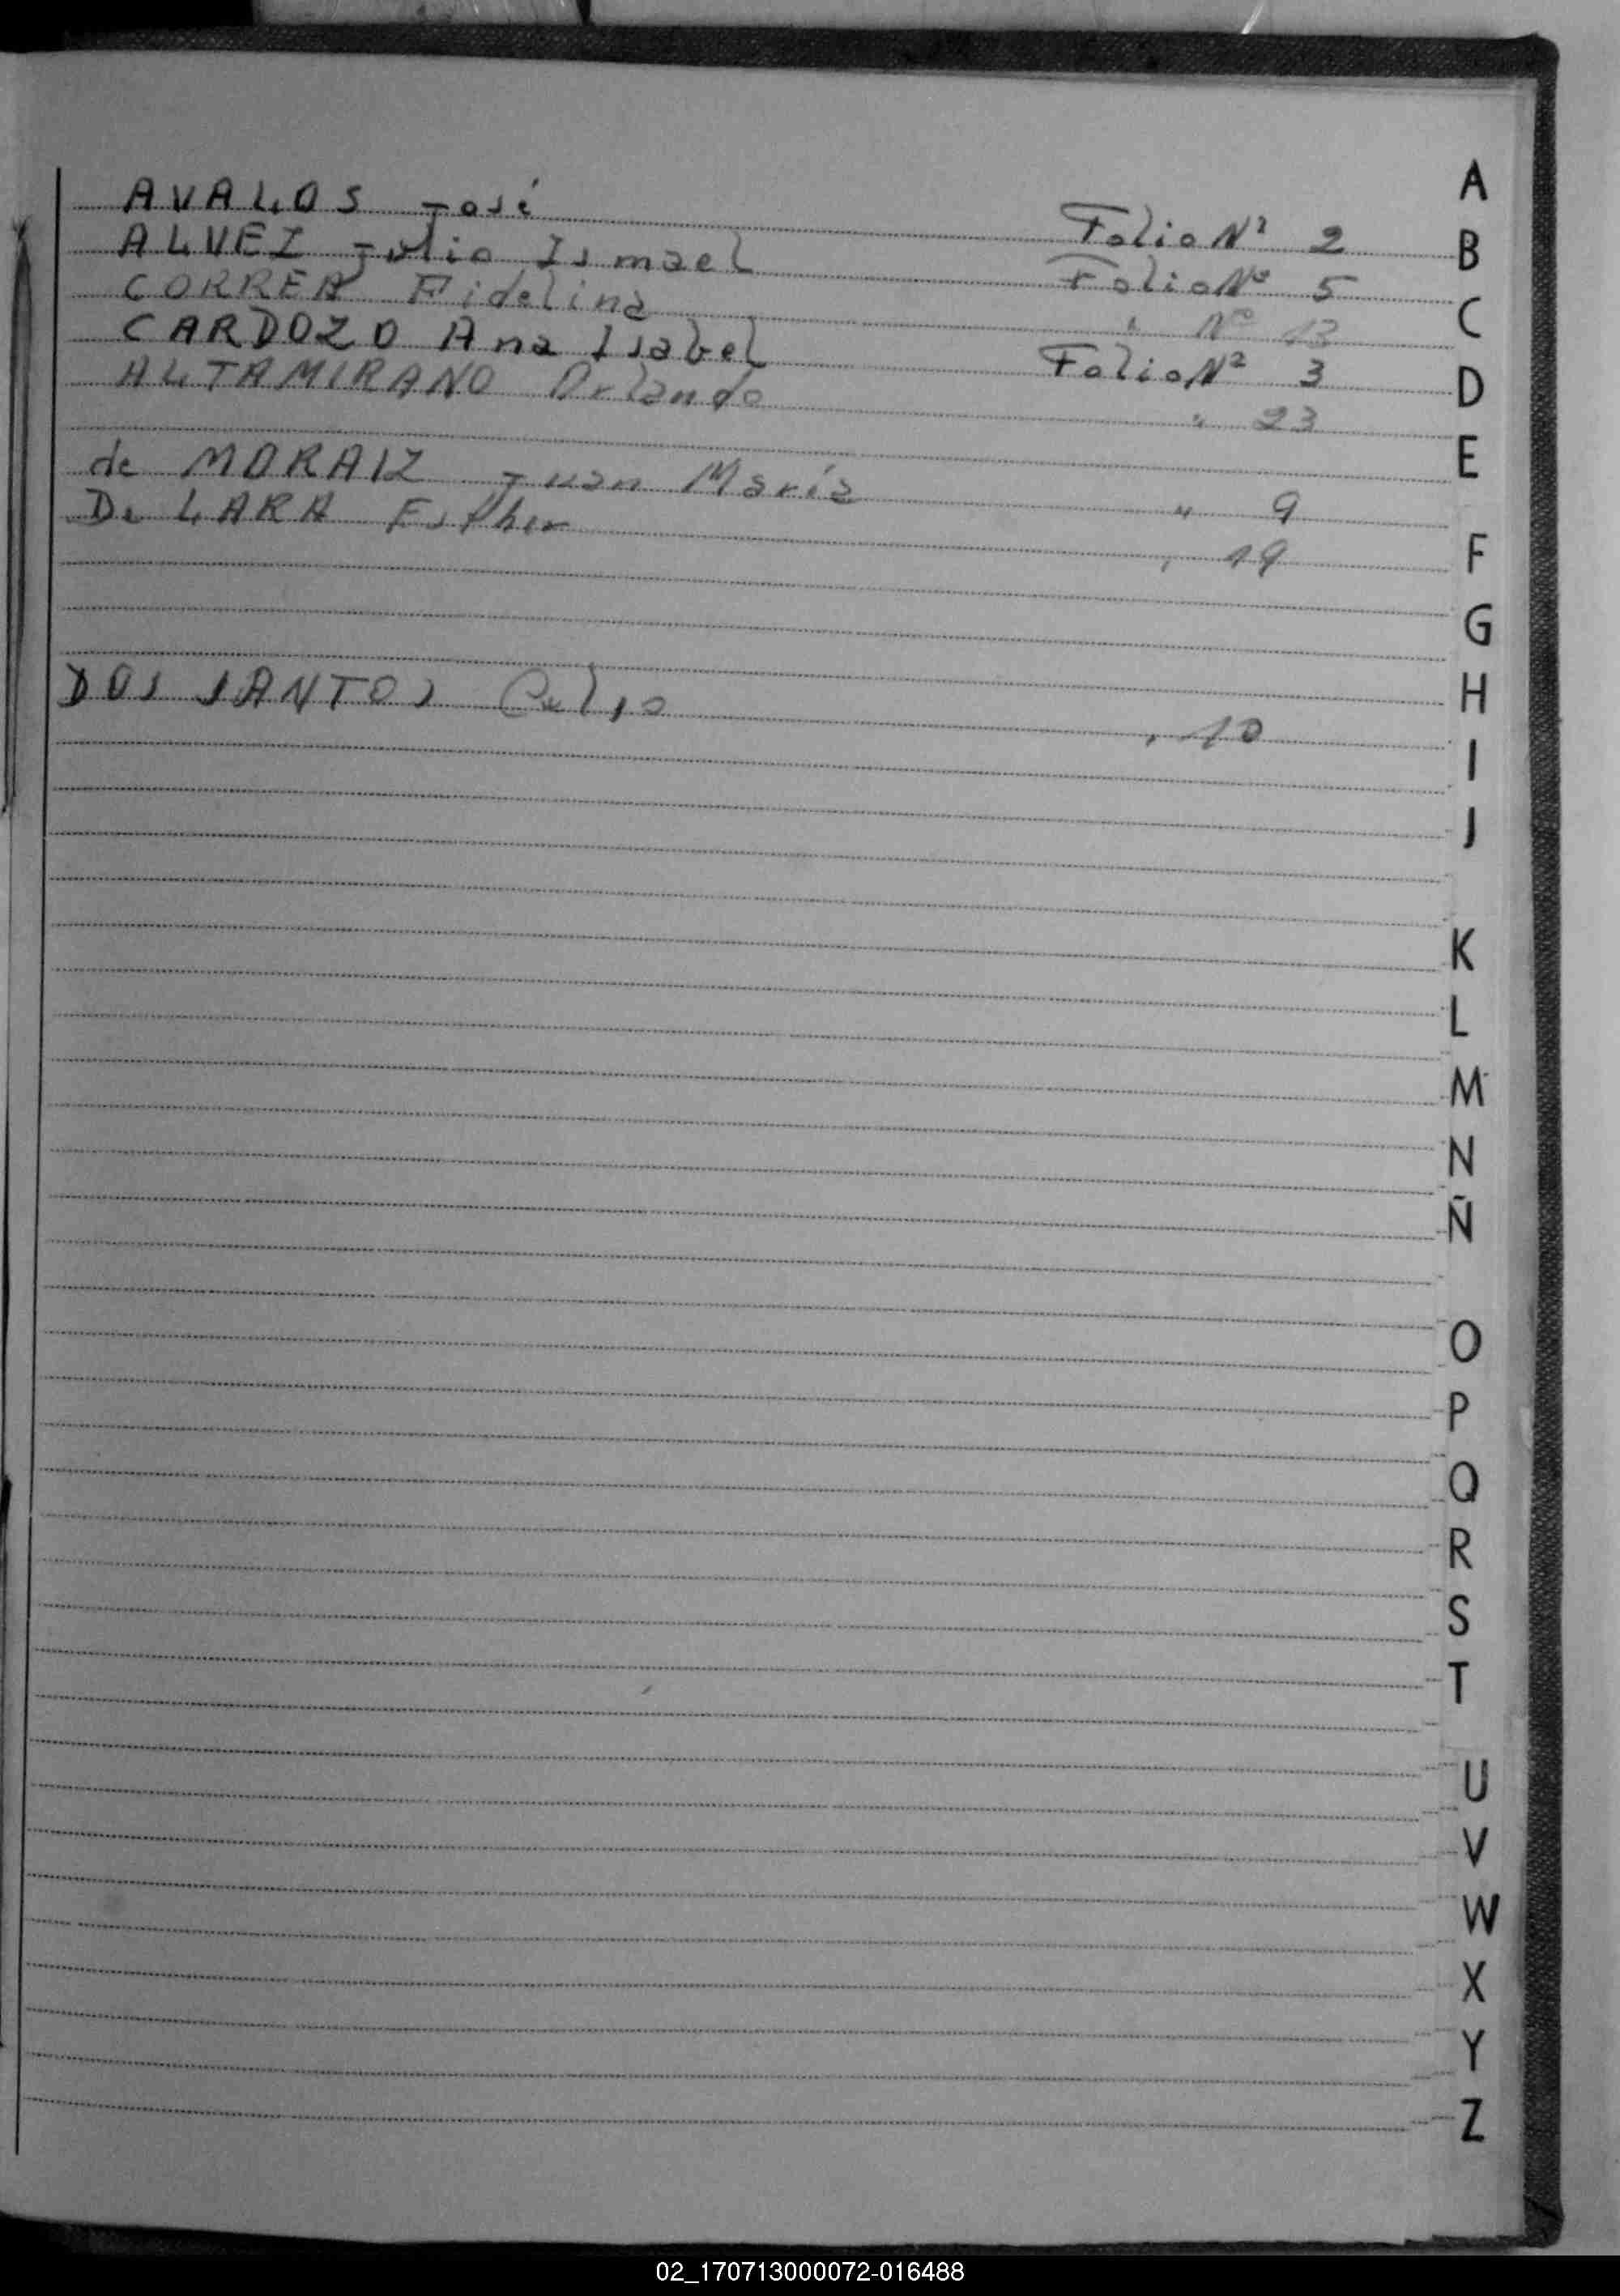 AVALOS José Folio Nº 2
ALVEZ Julio Ismael Folio Nº 5
CORREA Fidelina " Nº 13
CARDOZO Ana Isabel Folio Nº 3
ALTAMIRANO Orlando " 23
de MORAIZ Juan María " 9
De LARA Esther " 19
DOS SANTOS Celio " 10
A
B
C
D
E
F
G
H
I
J
K
L
M
N
Ñ
O
P
Q
R
S
T
U
V
W
X
Y
Z
02_170713000072-016488